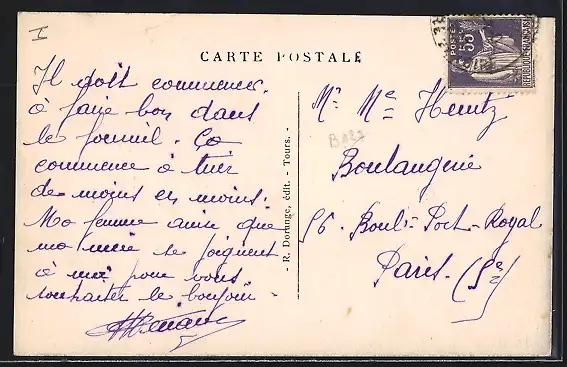 I
CARTE POSTALE
Il doit commencer
à faire bon dans
le fournil. Ça
commence à tuer
de moins en moins.
Ma femme ainsi que
ma mère se joignent
à moi pour vous
souhaiter le bonjour
- R. Dorange, édit. - Tours. -
POSTES
55c
REPUBLIQUE FRANÇAISE
Mr Me Heintz
B122
Boulangerie
56. Boulд Port-Royal
Paris. (5e)